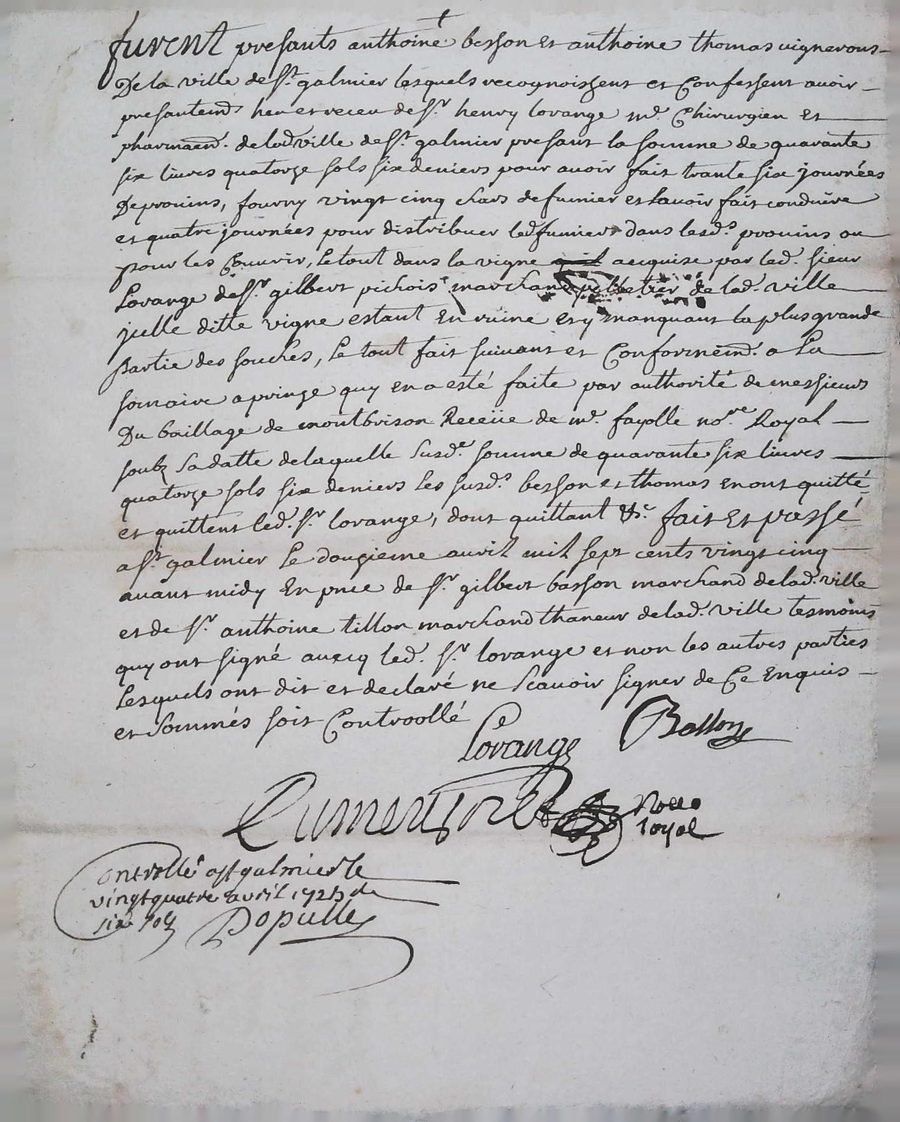 furent presants anthoine besson et anthoine thomas vignerons
De la ville de st. galmier lesquels recognoissent et Confessent avoir
presantemt. heu et receu de sr. henry lovange me. Chirurgien et
pharmaen. de lad. ville de st. galmier presant la somme de quarante
six livres quatorze sols six deniers pour avoir fait trante six journées
De provins, fourny vingt cinq chars de fumier et Lavoir fait conduire
et quatre journées pour distribuer led. fumier dans lesds. provins ou
pour les Couvrir, Le tout dans la vigne acquise par led. sieur
Lovange de sr. gilbert pichois marchand pelletier de lad. ville
jcelle ditte vigne estant En ruine et y manquant la plus grande
Partie des souches, Le tout fait suivant et Conformemt. a La
somaire aprinze quy en a esté faite par authorité de messieurs
Du baillage de montbrison Receüe de me. fayolle nore. Royal
soubz Sa datte de laquelle susde. somme de quarante six livres
quatorze sols six deniers les susds. besson et thomas en ont quitté
et quittent led. sr. lovange, dont quittant &c. fait Et passé
a st. galmier Le douzieme avril mil sept cents vingt cinq
avant midy En pnce de sr. gilbert basson marchand de lad. ville
et de sr. anthoine tillon marchand thaneur de lad. ville tesmoins
quy ont signé avecq led. sr. lovange et non les autres parties
Lesquels ont dit et declaré ne Scavoir signer de Ce Enquis
et Sommés soit Controollé
Lovange Basson
royal
Controllé a st galmier le
vingt quatre avril 1725 du
six sols
Dopulle